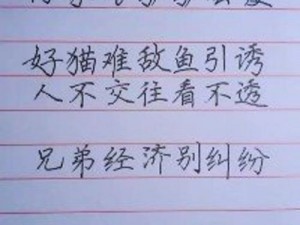 好猫难敌鱼引诱
人不交往看不透
兄弟经济别纠纷